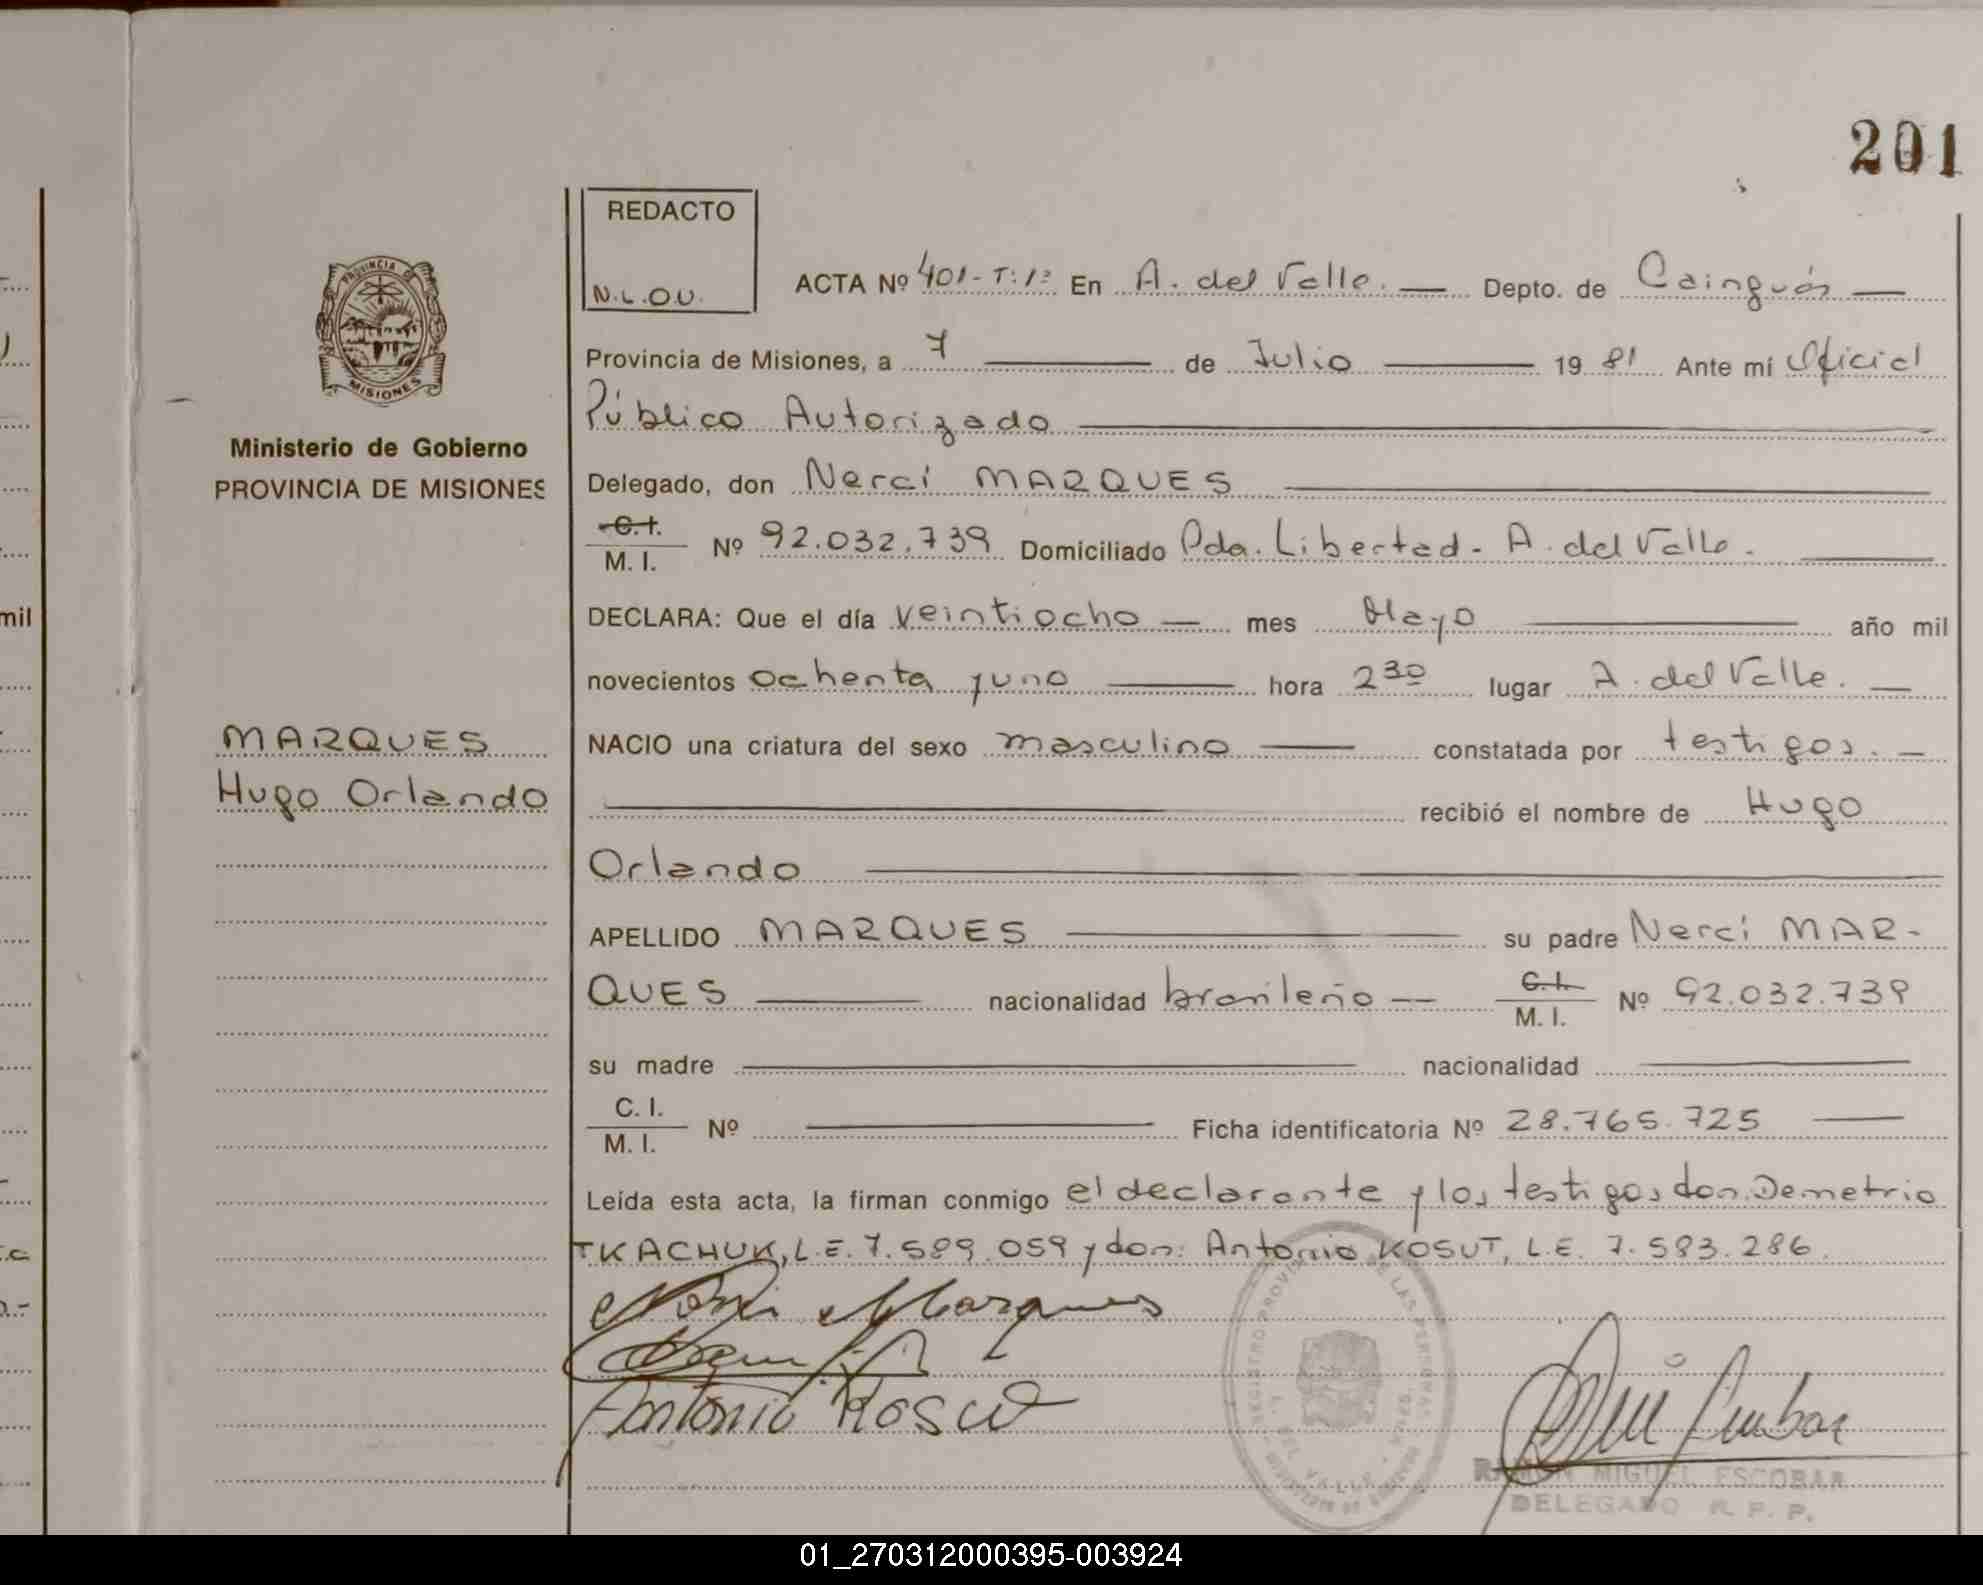 201
REDACTO
N.L.O.U.
ACTA Nº 401-T:1º En A. del Valle. Depto. de Cainguás
Provincia de Misiones, a 7 de Julio 19 81 Ante mí Oficial
Público Autorizado
Delegado, don Nerci MARQUES
C.I.
M. I. Nº 92.032.739 Domiciliado Pda. Libertad - A. del Valle.
DECLARA: Que el día veintiocho mes Mayo año mil
novecientos ochenta y uno hora 2 30 lugar A. del Valle.
NACIO una criatura del sexo masculino constatada por testigos.
recibió el nombre de Hugo
Orlando
APELLIDO MARQUES su padre Nerci MAR-
QUES nacionalidad brasileño C.I. M. I. Nº 92.032.739
su madre nacionalidad
C. I.
M. I. Nº Ficha identificatoria Nº 28.765.725
Leída esta acta, la firman conmigo el declarante y los testigos don. Demetrio
TKACHUK, L.E. 7.589.059 y don: Antonio KOSUT, L.E. 7.583.286.
Marques
Antonio Kosut
REGISTRO PROVINCIAL DE LAS PERSONAS
DEL VALLE - MNES.
MINISTERIO DE GOBIERNO
RAMON MIGUEL ESCOBAR
DELEGADO R. P. P.
PROVINCIA DE
MISIONES
Ministerio de Gobierno
PROVINCIA DE MISIONES
MARQUES
Hugo Orlando
mil
01_270312000395-003924